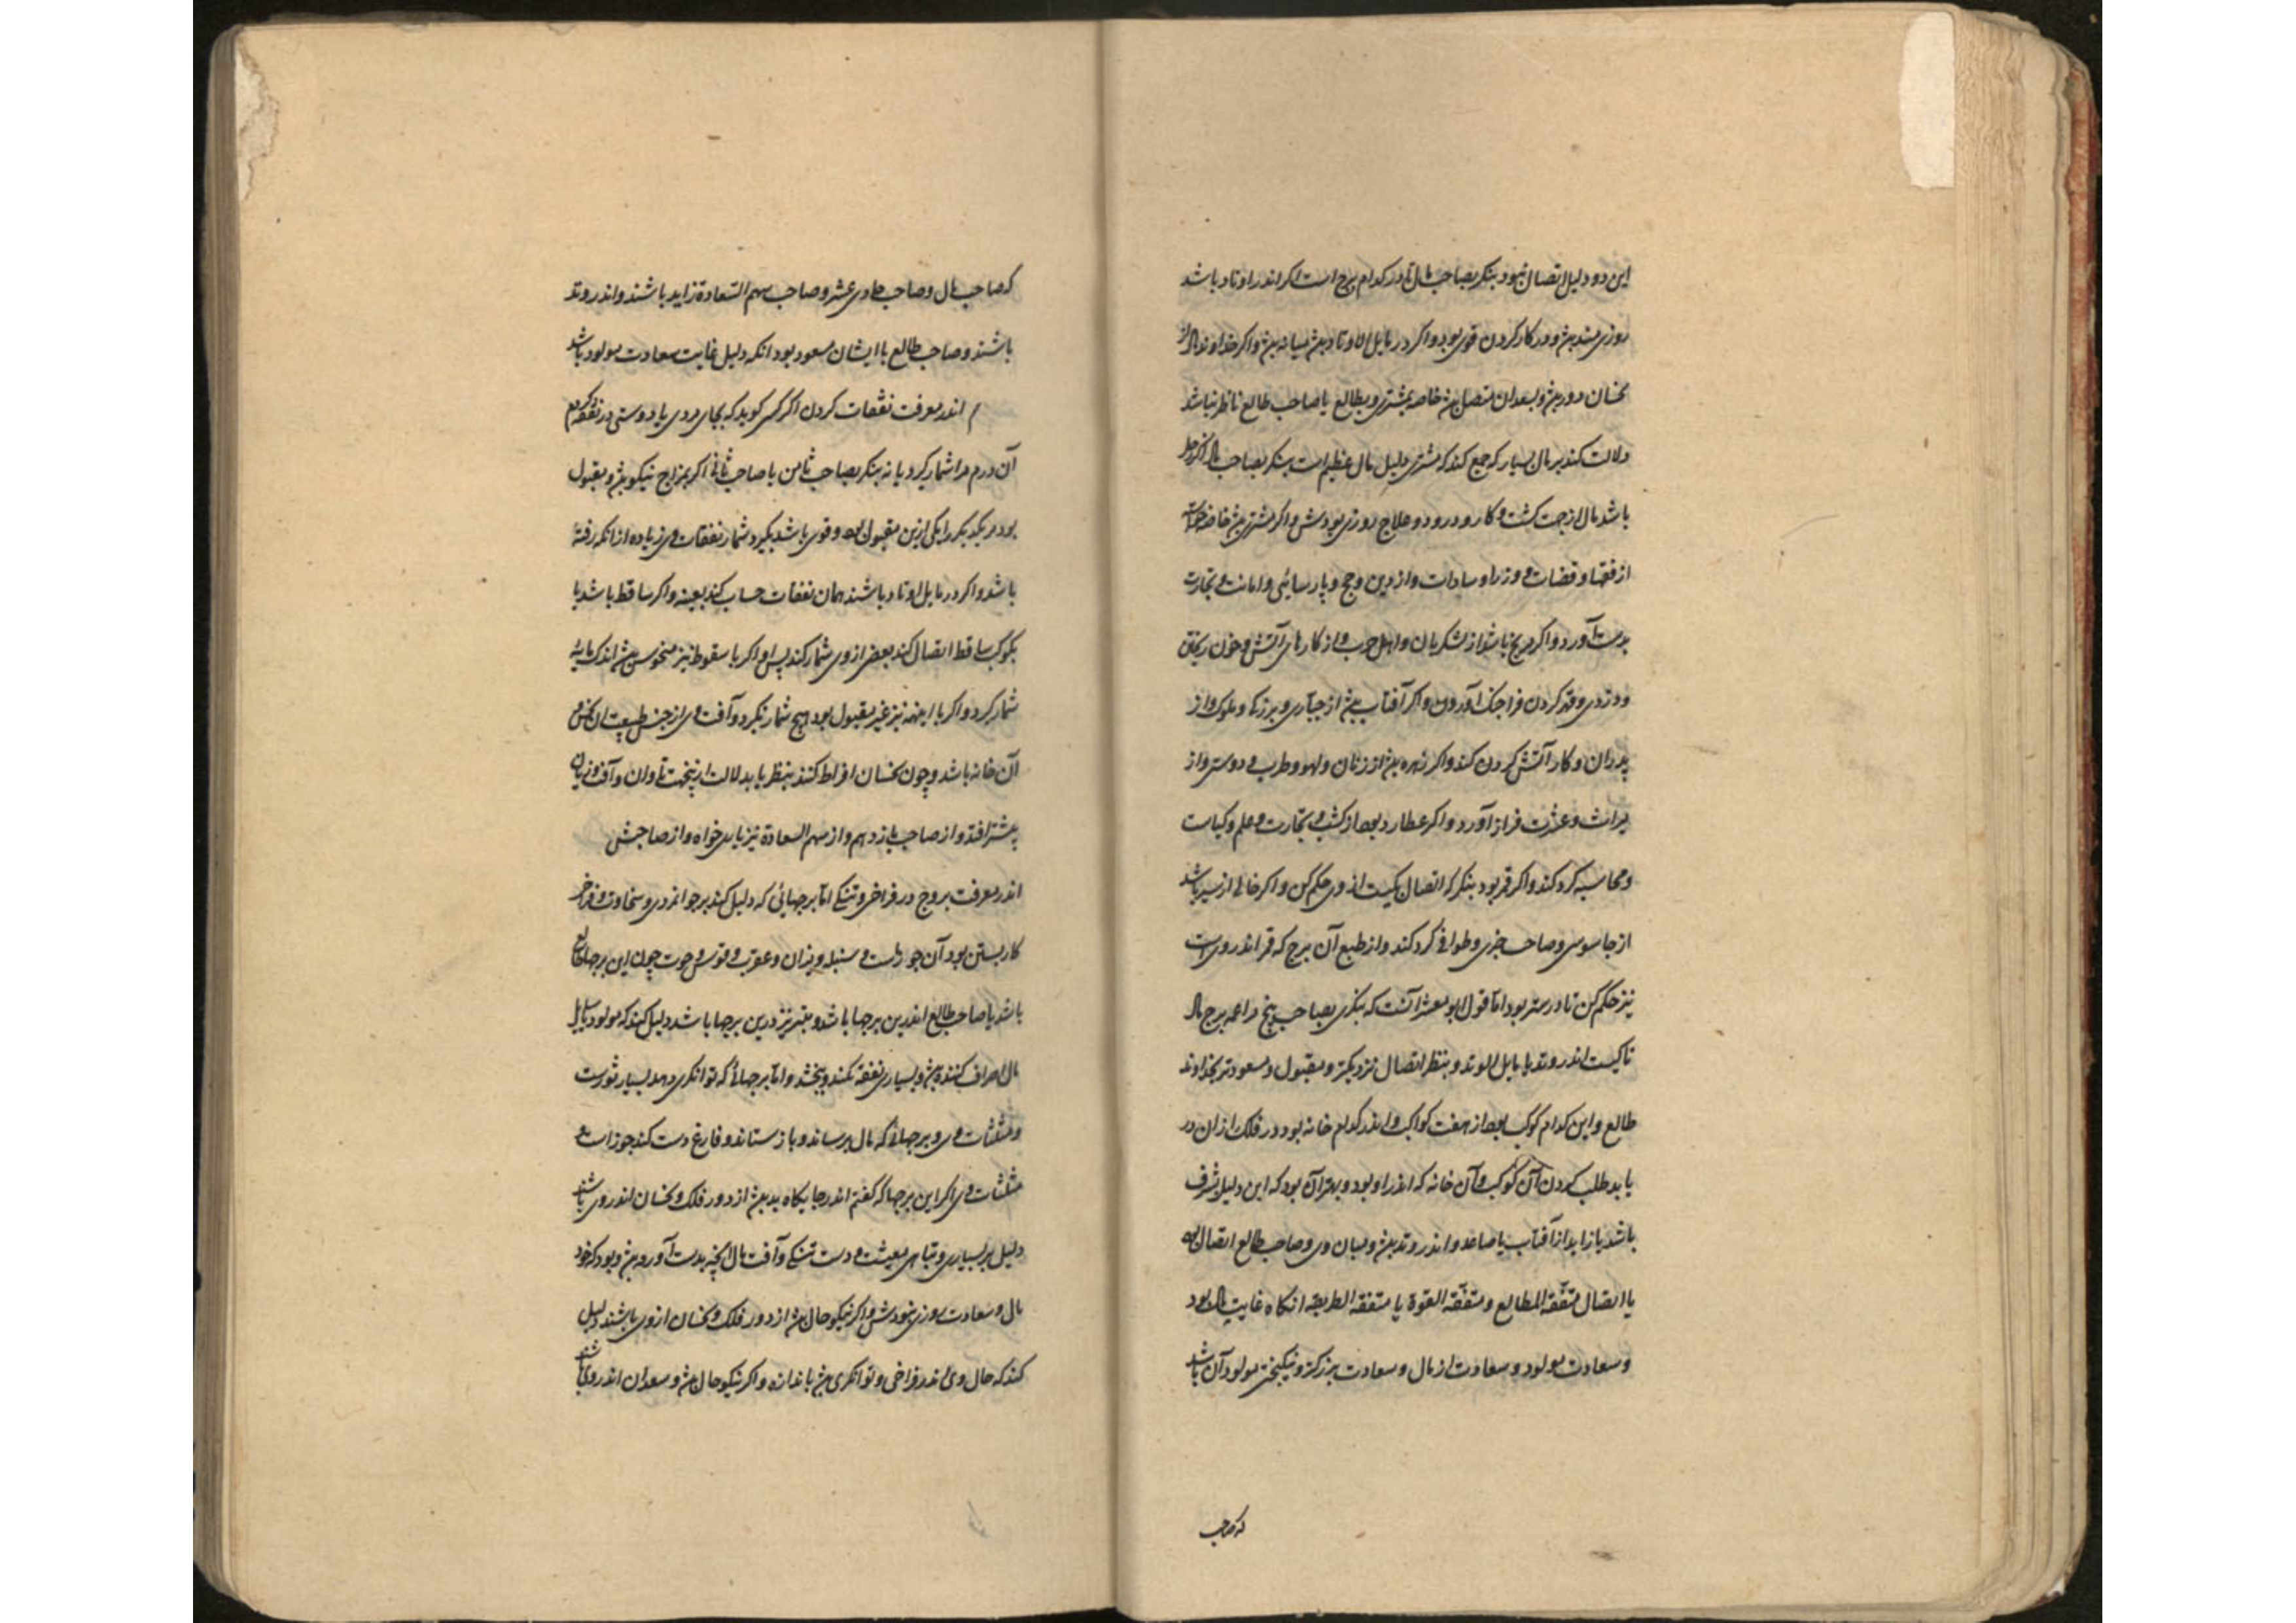 این دو دلیل اتصال نبود بنکر بصاحب مال تا در کدام برج است اکر اندر اوتاد باشد
روزی مند بود و در کار کردن قوی بود و اکر در مایل الاوتاد بود میانه بود و اکر خداوند مال از
نحسان دور بود و بسعدان متصل بود خاصه بمشتری و بطالع یا صاحب طالع ناظر نباشد
دلالت کند بر مال بسیار که جمع کند که مشتری دلیل مال عظیم است بنکر بصاحب مال اکر زحل
باشد مال از جهت کشت و کار و درود و علاج روزی بودش و اکر مشتری بود خاصه
از فقها و قضات و وزرا و سادات و از دین و حج و پارسائی و امانت و تجارت
بدست آورد و اکر مریخ باشد از لشکریان و اهل حرب و از کارهای آتش و خون ریختن
و دزدی و کردن فراچنک آوردن و اکر آفتاب بود از جباری و بزرکا و ملوک و از
پدران و کار آتش کردن کند و اکر زهره بود از زنان و لهو و طرب و دوستی و از
میراث و عشرت فراز آورد و اکر عطارد بود از کتب و تجارت و علم و کیاست
و محاسبه کرد کند و اکر قمر بود بنکر که اتصال بکیست از وی حکم کن و اکر خالی از سیر باشد
از جاسوسی و صاحب خبری و طوافی کرد کند و از طبع آن برج که قمر اندر وی است
نیز حکم کن تا درستر بود اما قول ابو معشر آنست که بنکری بصاحب پنج مراعمه برج مال
تا کیست اندر وتد یا مایل الوتد و بنظر اتصال نزدیکتر و مقبول و مسعودتر بخداوند
طالع و این کدام کوکب بود از هفت کواکب و اندر کدام خانه بود در فلک از ان در
باید طلب کردن آن کوکب و آن خانه که اندر او بود و بهتر آن بود که این دلیل مشرف
باشد یا زاید از آفتاب یا صاعد و اندر وتد بود و میان وی و صاحب طالع اتصال بود
یا اتصال متفقة المطالع و متفقة القوة یا متفقة الطریقه انکاه غایت مال بود
و سعادت مولود و سعادت از مال و سعادت بزرکتر و نیکبختی مولود آن باشد
که صاحب
که صاحب مال و صاحب حادی عشر و صاحب سهم السعادة زاید باشند و اندر وتد
باشند و صاحب طالع با ایشان مسعود بود انکه دلیل غایت سعادت مولود باشد
اندر معرفت نفقات کردن اکر کسی کوید که بجای مردی یا دوستی در نفقه کردم
آن درم مرا شمار کرد یا نه بنکر بصاحب ثامن یا صاحب ثانی اکر بمزاج نیکو بود و مقبول
بود مر یکدیکر را یکی ازین مقبول بود و قوی باشد بکیرد شمار نفقات وی زیاده از انکه رفته
باشد و اکر در مایل اوتاد باشند همان نفقات حساب کند بعینه و اکر ساقط باشد یا
بکوکب ساقط اتصال کند بعضی از وی شمار کند پس او اکر با سقوط نیز منحوس بود اندک مایه
شمار کرد و اکر با اینهمه نیز غیر مقبول بود هیچ شمار نکرد و آفت وی از جنس طبیعت ان نحس و
آن خانه باشد و چون نحسان افراط کنند بنظر یا بدلالت تاوان و آفت و زیان
بیشتر افتد و از صاحب یازدهم و از سهم السعادة نیز یاری خواه و از صاحبش
اندر معرفت بروج در فراخی و تنکی اما برجهائی که دلیل کند بر جوانمردی و سخاوت و فراخ
کار بستن بود آن جوزاست و سنبله و میزان و عقرب و قوس و حوت چون این برجها طالع
باشد یا صاحب طالع اندرین برجها باشد و قمر نیز درین برجها باشد دلیل کند که مولود
مال اصراف کننده بود و بسیاری نفقه کند و بخشد و اما برجهائی که توانکری دهد بسیار ثورست
و مثلثات وی و برجهائی که مال برساند و باز ستاند و فارغ دست کند جوزاست و
مثلثات وی اکر این برجها که کفتم اندر جایکاه بد بود از دور فلک و نحسان اندر وی باشند
دلیل بر بسیاری و تباهی معیشت و دست تنکی و آفت مال انچه بدست آورده بود و بود که خود
مال و سعادت روزی نبودش و اکر نیکو حال بود از دور فلک و نحسان از وی باشند دلیل
کند که حال وی اندر فراخی و توانکری بود باندازه و اکر نیکو حال بود و سعدان اندر وی باشند